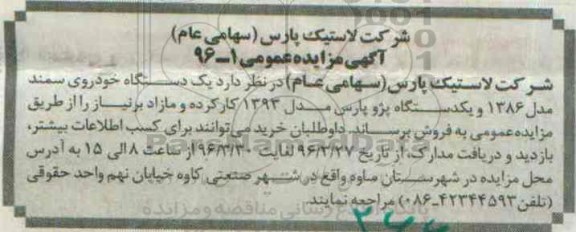 شرکت لاستیک پارس (سهامی عام)
آگهی مزایده عمومی ۱ـ۹۶
شرکت لاستیک پارس (سهامی عام) در نظر دارد یک دستگاه خودروی سمند
مدل ۱۳۸۶ و یکدستگاه پژو پارس مدل ۱۳۹۳ کارکرده و مازاد برنیاز را از طریق
مزایده عمومی به فروش برساند. داوطلبان خرید می‌توانند برای کسب اطلاعات بیشتر،
بازدید و دریافت مدارک، از تاریخ ۹۶/۲/۲۷ لغایت ۹۶/۳/۳۰ از ساعت ۸ الی ۱۵ به آدرس
محل مزایده در شهرستان ساوه واقع در شهر صنعتی کاوه خیابان نهم واحد حقوقی
(تلفن ۴۲۳۴۴۵۹۳ـ۰۸۶) مراجعه نمایند.
پایگاه اطلاع رسانی مناقصه و مزایده